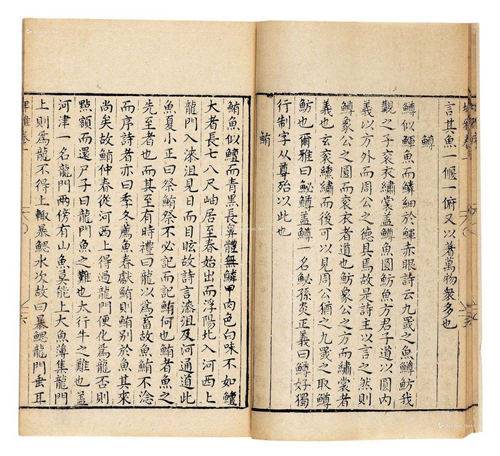 言其魚一偃一俯又以著萬物衆多也
鱒
鱒似鯶魚而鱗細於鯶赤眼詩云九罭之魚鱒魴我
覯之子袞衣繡裳蓋鱒魚圓魴魚方君子道以圓內
義以方外而周公之德具焉故是詩主以言之然則
鱒象公之圓而袞衣者道也魴象公之方而繡裳者
義也玄袞繡裳而後可以見周公猶之九罭之取鱒
魴也爾雅曰鮅鱒蓋鱒一名鮅孫炎正義曰鱒好獨
行制字从尊殆以此也
鮪
鮪魚似鱣而青黑長鼻體無鱗甲肉色白味不如鱣
大者長七八尺岫居至春始出而浮陽北入河西上
龍門入漆沮見日而目眩故詩言漆沮及河通道此
魚夏小正曰祭鮪祭不必記而記鮪何也鮪者魚之
先至者也而其至有時禮曰龍以為畜故魚鮪不淰
而序詩者亦曰季冬薦魚春獻鮪則鮪別於魚其來
尚矣故鮪仲春從河西上得過龍門便化為龍否則
點額而還尸子曰龍門魚之難也太行牛之難也蓋
河津一名龍門兩傍有山魚莫能上大魚薄集龍門
上則為龍不得上輒暴鰓水次故曰暴鰓龍門垂耳